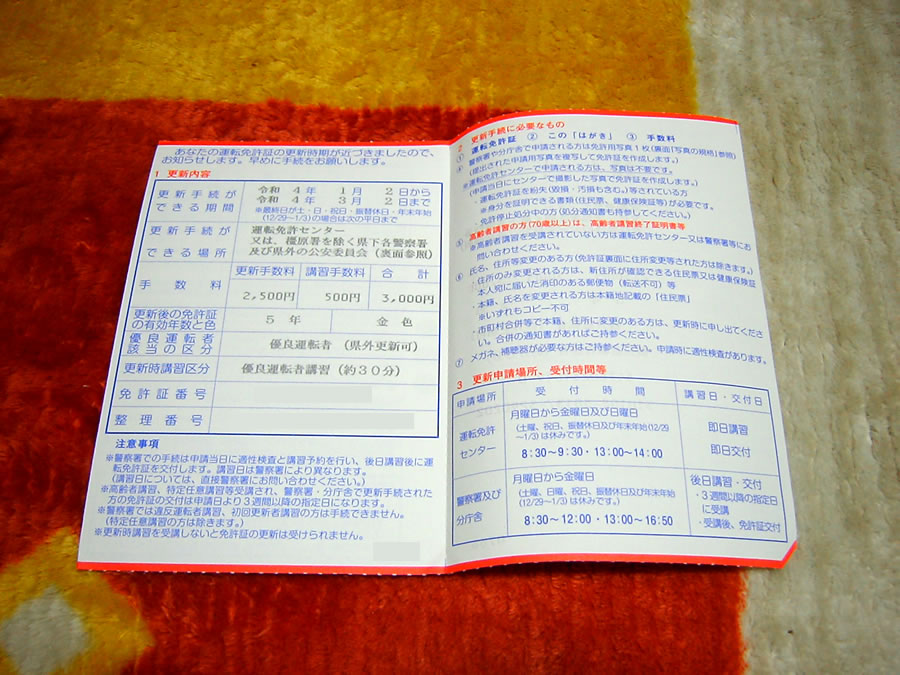 あなたの運転免許証の更新時期が近づきましたので、
お知らせします。早めに手続をお願いします。
1 更新内容
更新手続が
できる期間
令和 4年 1月 2日から
令和 4年 3月 2日まで
※最終日が土・日・祝日・振替休日・年末年始
(12/29～1/3)の場合は次の平日まで
更新手続が
できる場所
運転免許センター
又は、橿原署を除く県下各警察署
及び県外の公安委員会(裏面参照)
手数料
更新手数料 講習手数料 合計
2,500円 500円 3,000円
更新後の免許証
の有効年数と色
5 年 金 色
優良運転者
該当の区分
優良運転者 (県外更新可)
更新時講習区分
優良運転者講習 (約30分)
免許証番号
整理番号
注意事項
※警察署での手続は申請当日に適性検査と講習予約を行い、後日講習後に運
転免許証を交付します。講習日は警察署により異なります。
(講習日については、直接警察署にお問い合わせください。)
※高齢者講習、特定任意講習等受講され、警察署・分庁舎で更新手続された
方の免許証の交付は申請日より3週間以降の指定日になります。
※警察署では違反運転者講習、初回更新者講習の方は手続できません。
(特定任意講習の方は除きます。)
※更新時講習を受講しないと免許証の更新は受けられません。
2 更新手続に必要なもの
① 運転免許証 ② この「はがき」 ③ 手数料
④ 警察署や分庁舎で申請される方は免許用写真1枚(裏面「写真の規格」参照)
(提出された申請用写真を複写して免許証を作成します。)
※運転免許センターで申請される方は、写真は不要です。
(申請当日にセンターで撮影した写真で免許証を作成します。)
・運転免許証を紛失(毀損・汚損も含む。)等されている方
※身分を証明できる書類(住民票、健康保険証等)が必要です。
・免許停止処分中の方(処分通知書も持参してください。)
⑤ 高齢者講習の方(70歳以上)は、高齢者講習終了証明書等
※高齢者講習を受講されていない方は運転免許センター又は警察署等にお
問い合わせください。
⑥ 氏名、住所等変更のある方(免許証裏面に住所変更等された方は除きます。)
・住所のみ変更される方は、新住所が確認できる住民票又は健康保険証
本人宛に届いた消印のある郵便物(転送不可)等
・本籍、氏名を変更される方は本籍地記載の「住民票」
※いずれもコピー不可
・市町村合併等で本籍、住所に変更のある方は、更新時に申し出てくださ
い。合併の通知書があればご持参ください。
⑦ メガネ、補聴器が必要な方はご持参ください。申請時に適性検査があります。
3 更新申請場所、受付時間等
申請場所 受付時間 講習日・交付日
運転免許
センター
月曜日から金曜日及び日曜日
(土曜、祝日、振替休日及び年末年始(12/29
～1/3)は休みです。)
8:30～9:30・13:00～14:00
即日講習
即日交付
警察署及び
分庁舎
月曜日から金曜日
(土曜、日曜、祝日、振替休日及び年末年始
(12/29～1/3)は休みです。)
8:30～12:00・13:00～16:50
後日講習・交付
・3週間以降の指定日
に受講
・受講後、免許証交付